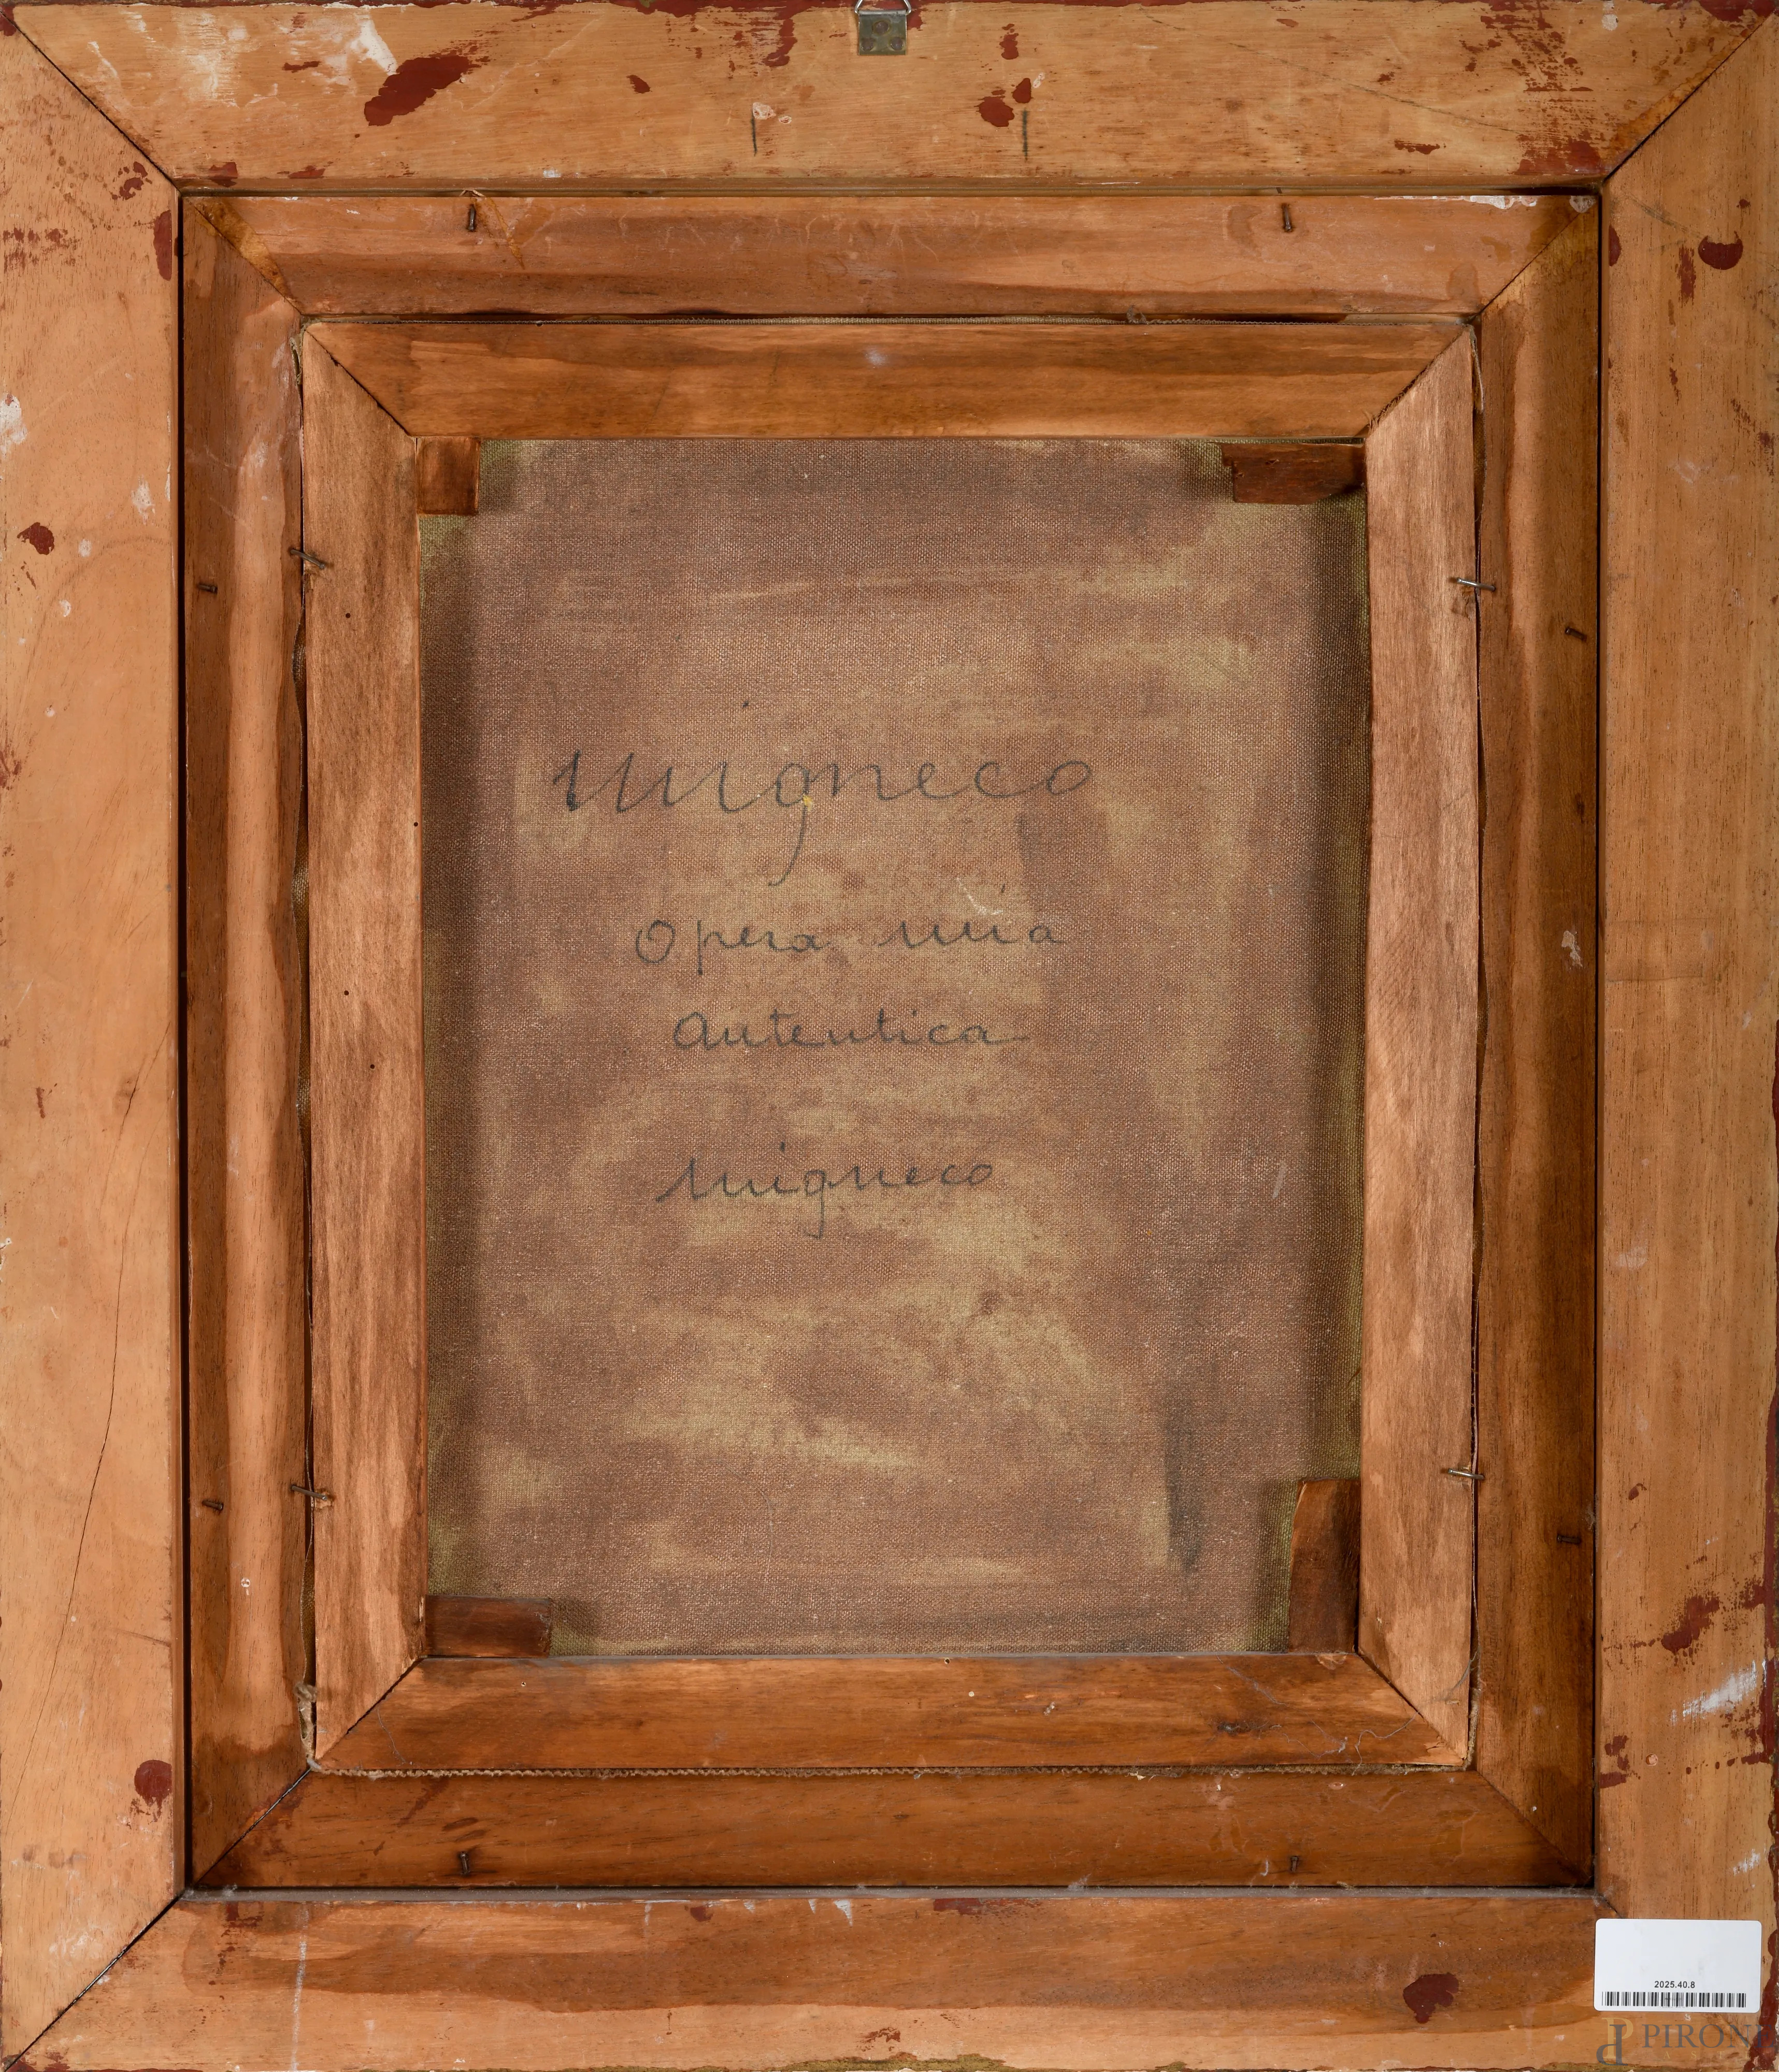 migneco
Opera mia
autentica
migneco
2025.40.8
PIRONI